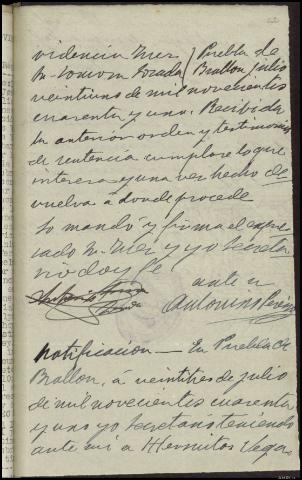 videncia Juez
Sr. Somoza Losada
Puebla de
Brollon julio
veintiuno de mil novecientos
cuarenta y uno. Recibida
la anterior orden y testimonio
de sentencia cumplase lo que
interesa y una vez hecho de
vuelva a donde procede
Lo mandó y firma el expre
sado Sr. Juez y yo Secreta
rio doy fe
ante mi
Notificacion — En Puebla de
Brollon, á veintitres de julio
de mil novecientos cuarenta
y uno yo Secretario teniendo
ante mi a Vega